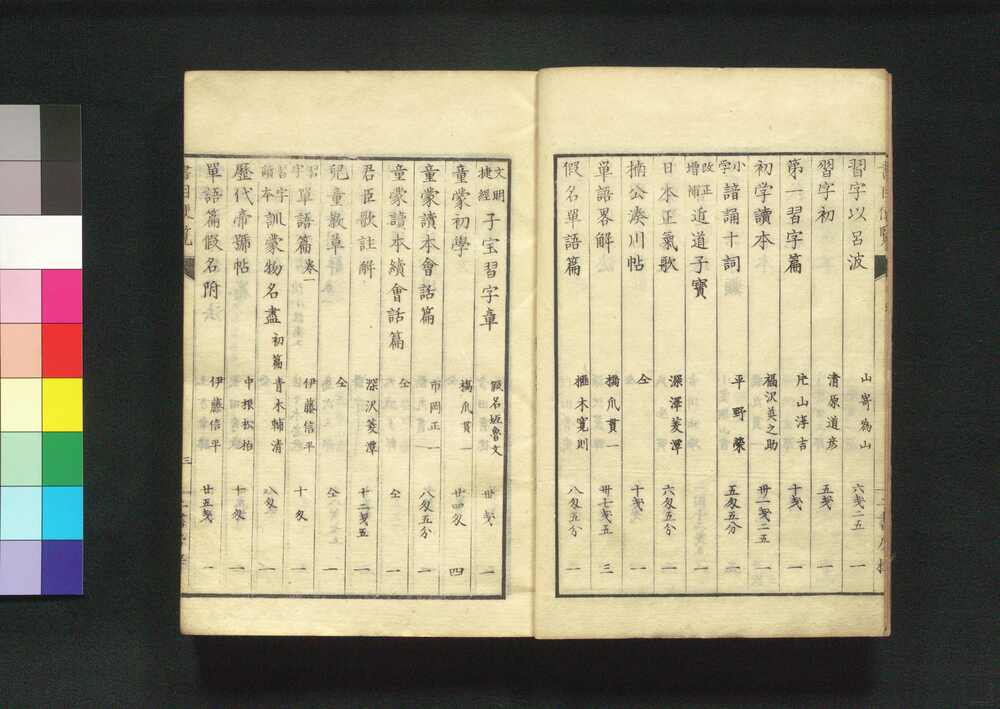 習字以呂波 山嵜爲山 六戔二五 一
習字初 清原道彦 五戔 一
第一習字篇 片山淳吉 十戔 一
初学讀本 福沢英之助 卅一戔二五 一
小学諳誦十詞 平野榮 五匁五分 一
改正増補近道子寳 一
日本正氣歌 深澤菱潭 六匁五分 一
楠公湊川帖 仝 十戔 一
單語畧解 橋爪貫一 卅七戔五 三
假名單語篇 櫃木寛則 八匁五分 一
文明捷經子宝習字章 假名垣魯文 卅戔 一
童蒙初學 橋爪貫一 廿四匁 四
童蒙讀本會話篇 市岡正一 八匁五分 一
童蒙讀本續會話篇 仝 仝 一
君臣歌註解 深沢菱潭 十二戔五 一
兒童教草 仝 仝 一
習字單語篇巻一 伊藤信平 十匁 一
習字讀本訓蒙物名盡初篇 青木輔清 八匁 一
歴代帝號帖 中根松柏 一
單語篇假名附 伊藤信平 廿五戔 一
三